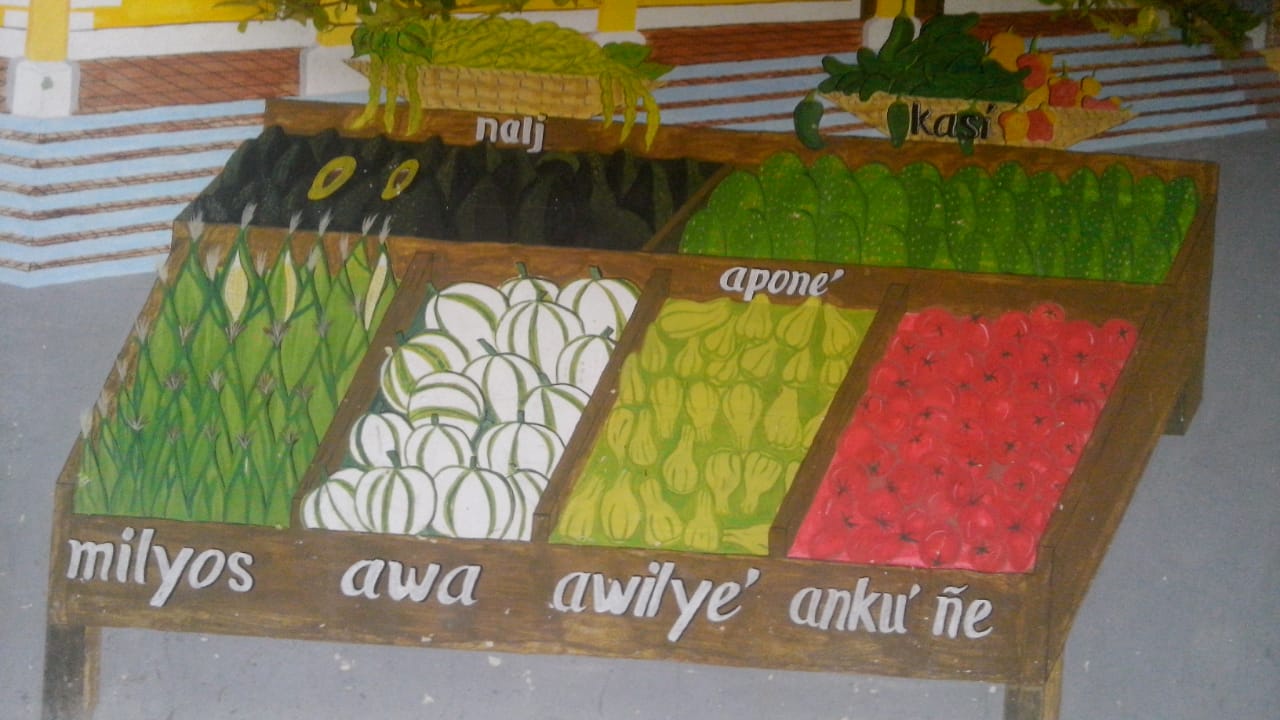 nalj
kasí
aponé
milyos
awa
awilye'
ankú ñe